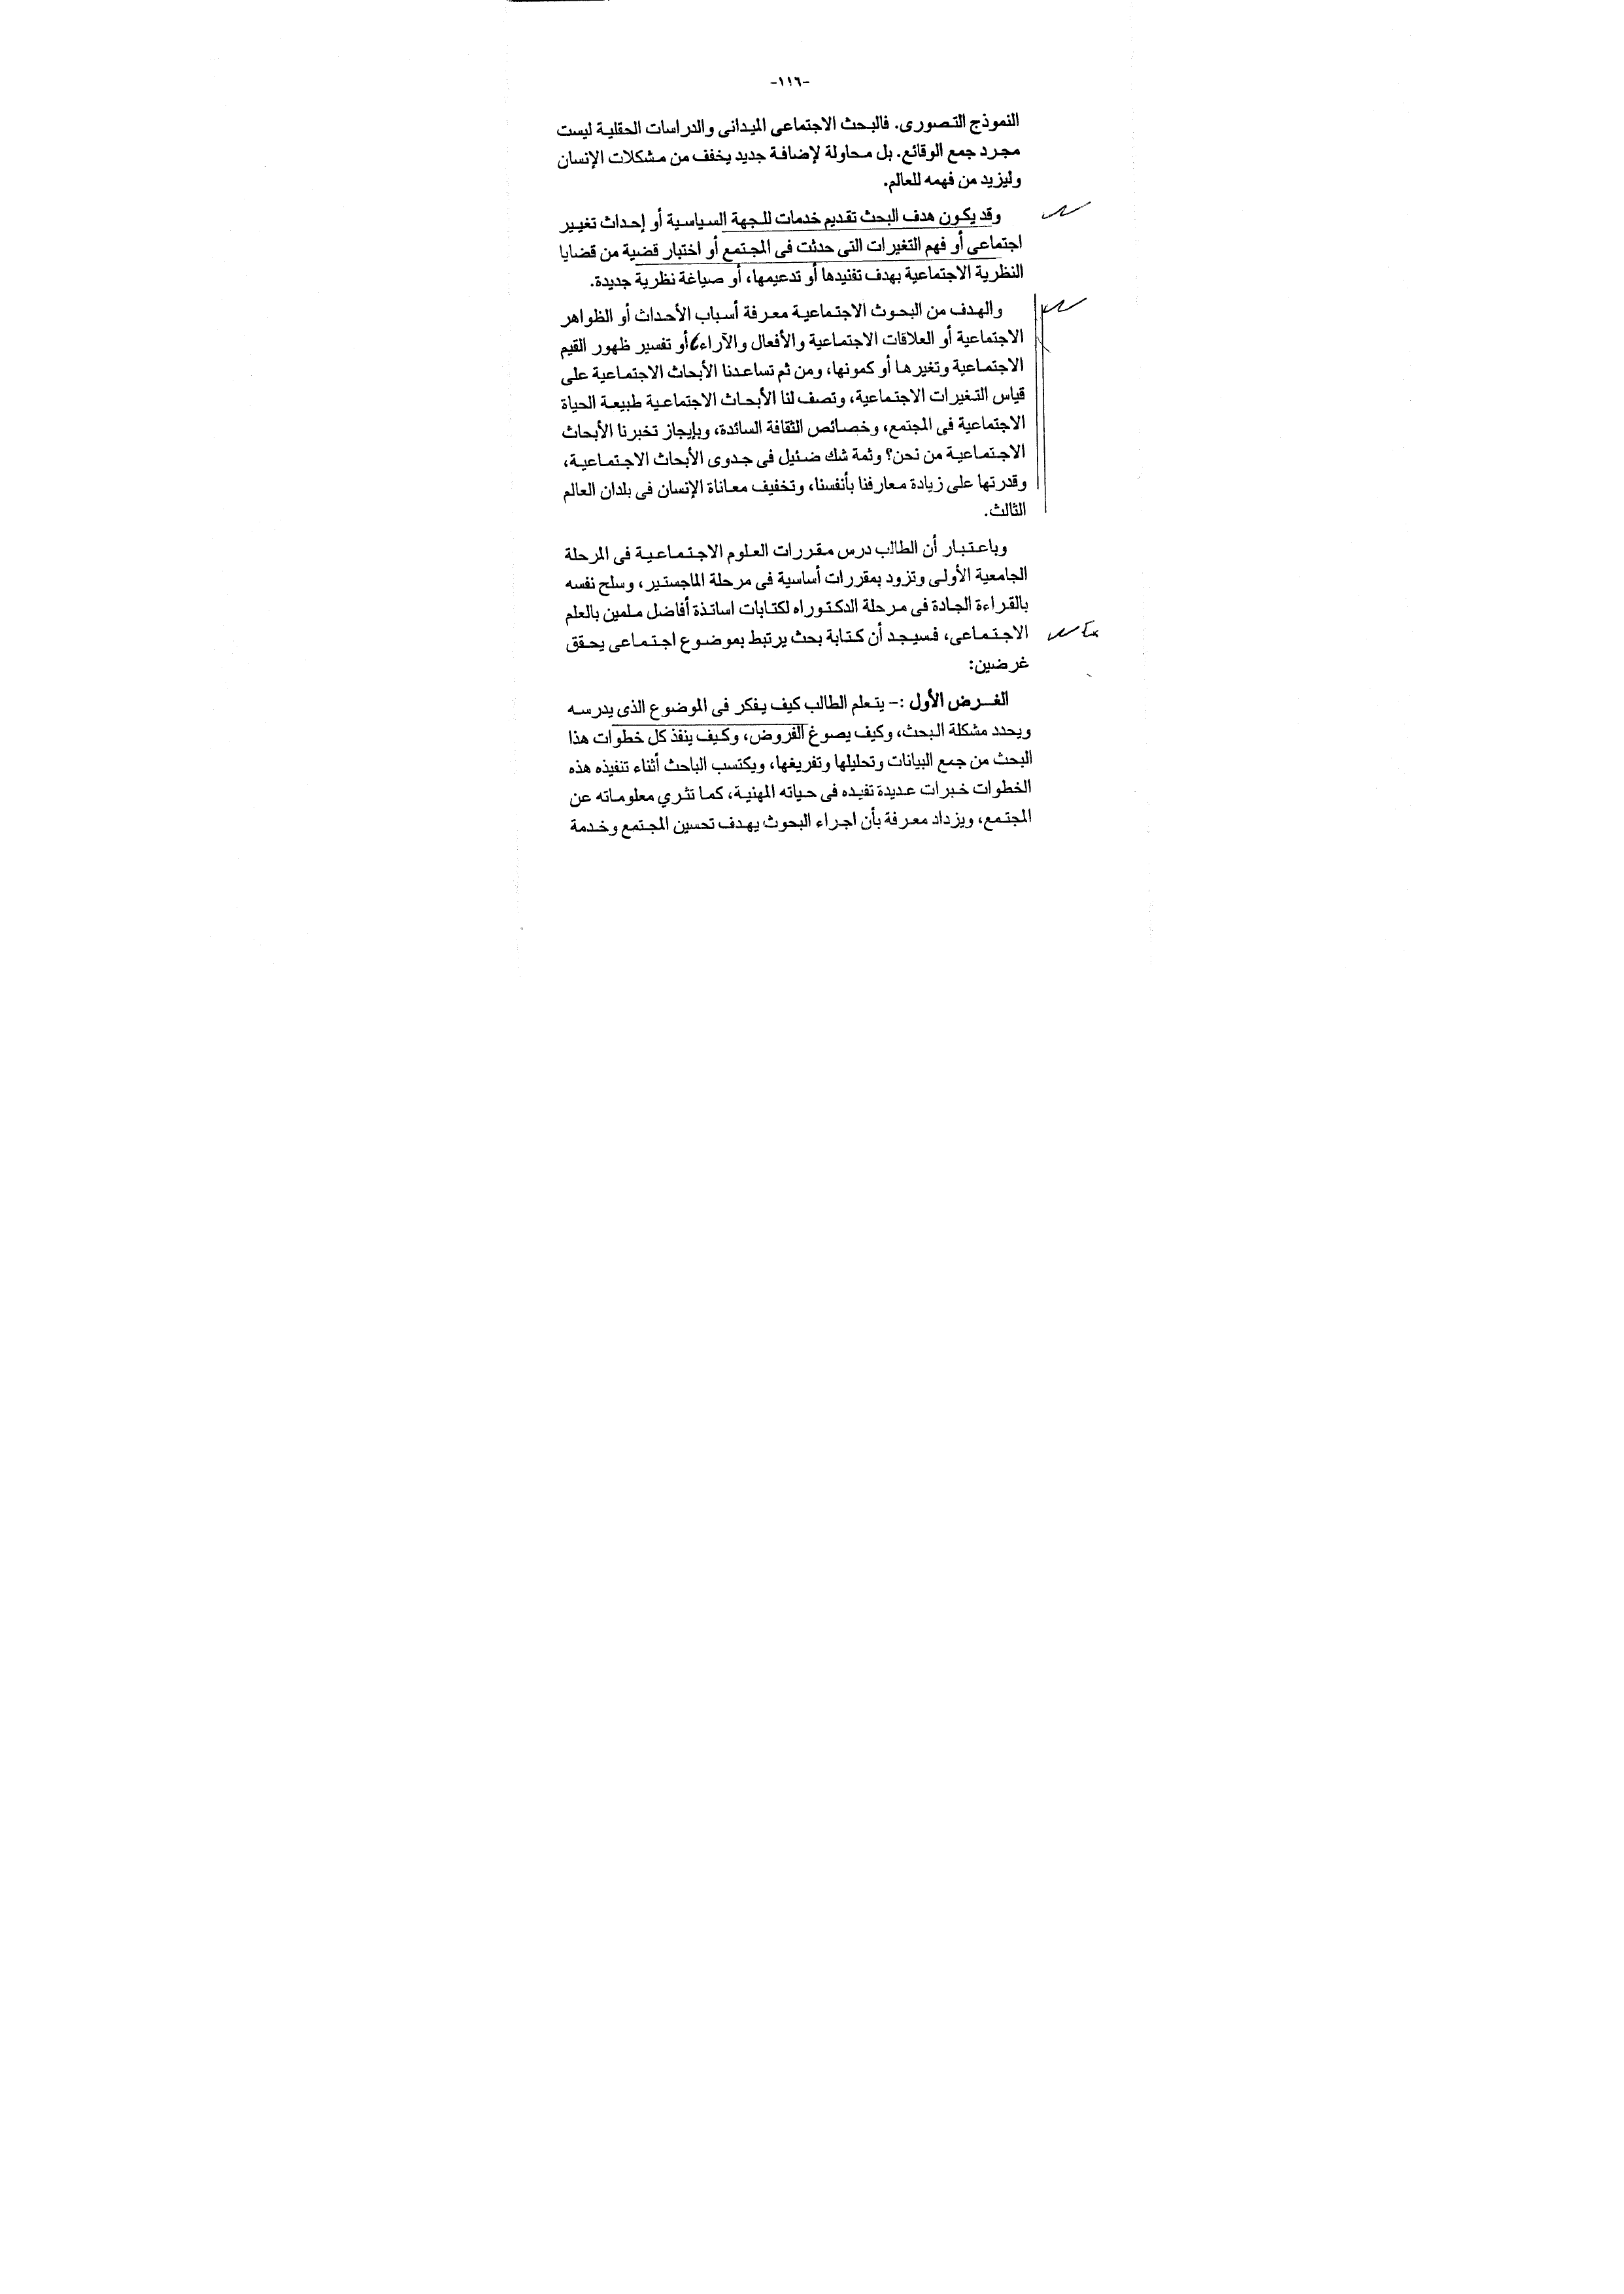 -١١٦-
النموذج التصورى. فالبحث الاجتماعى الميدانى والدراسات الحقلية ليست
مجرد جمع الوقائع. بل محاولة لإضافة جديد يخفف من مشكلات الإنسان
وليزيد من فهمه للعالم.
وقد يكون هدف البحث تقديم خدمات للجهة السياسية أو إحداث تغيير
اجتماعى أو فهم التغيرات التى حدثت فى المجتمع أو اختبار قضية من قضايا
النظرية الاجتماعية بهدف تفنيدها أو تدعيمها، أو صياغة نظرية جديدة.
والهدف من البحوث الاجتماعية معرفة أسباب الأحداث أو الظواهر
الاجتماعية أو العلاقات الاجتماعية والأفعال والآراء، أو تفسير ظهور القيم
الاجتماعية وتغيرها أو كمونها، ومن ثم تساعدنا الأبحاث الاجتماعية على
قياس التغيرات الاجتماعية، وتصف لنا الأبحاث الاجتماعية طبيعة الحياة
الاجتماعية فى المجتمع، وخصائص الثقافة السائدة، وبإيجاز تخبرنا الأبحاث
الاجتماعية من نحن؟ وثمة شك ضئيل فى جدوى الأبحاث الاجتماعية،
وقدرتها على زيادة معارفنا بأنفسنا، وتخفيف معاناة الإنسان فى بلدان العالم
الثالث.
وباعتبار أن الطالب درس مقررات العلوم الاجتماعية فى المرحلة
الجامعية الأولى وتزود بمقررات أساسية فى مرحلة الماجستير، وسلح نفسه
بالقراءة الجادة فى مرحلة الدكتوراه لكتابات اساتذة أفاضل ملمين بالعلم
الاجتماعى، فسيجد أن كتابة بحث يرتبط بموضوع اجتماعى يحقق
غرضين:
الغرض الأول :- يتعلم الطالب كيف يفكر فى الموضوع الذى يدرسه
ويحدد مشكلة البحث، وكيف يصوغ الفروض، وكيف ينفذ كل خطوات هذا
البحث من جمع البيانات وتحليلها وتفريغها، ويكتسب الباحث أثناء تنفيذه هذه
الخطوات خبرات عديدة تفيده فى حياته المهنية، كما تثري معلوماته عن
المجتمع، ويزداد معرفة بأن اجراء البحوث يهدف تحسين المجتمع وخدمة